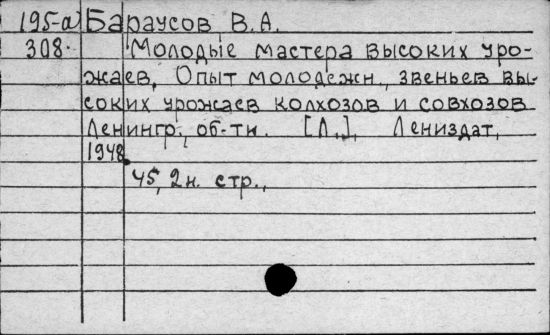 195-а Бараусов В.А.
308. Молодые мастера высоких уро-
жаев, Опыт молодежн., звеньев вы-
соких урожаев колхозов и совхозов
Ленингр., об-ти. [Л.], Лениздат,
1948.
45, 2н. стр.,